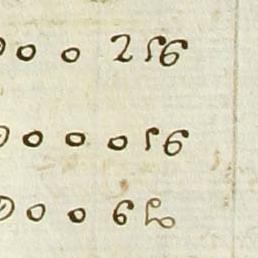 0 0 0 256
0 0 0 0 56
0 0 0 6